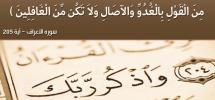 مِنَ الْقَوْلِ بِالْغُدُوِّ وَالآصَالِ وَلاَ تَكُن مِّنَ الْغَافِلِينَ )
سوره الأعراف - آية 205
٢٠٤
وَاذْكُر رَّبَّكَ